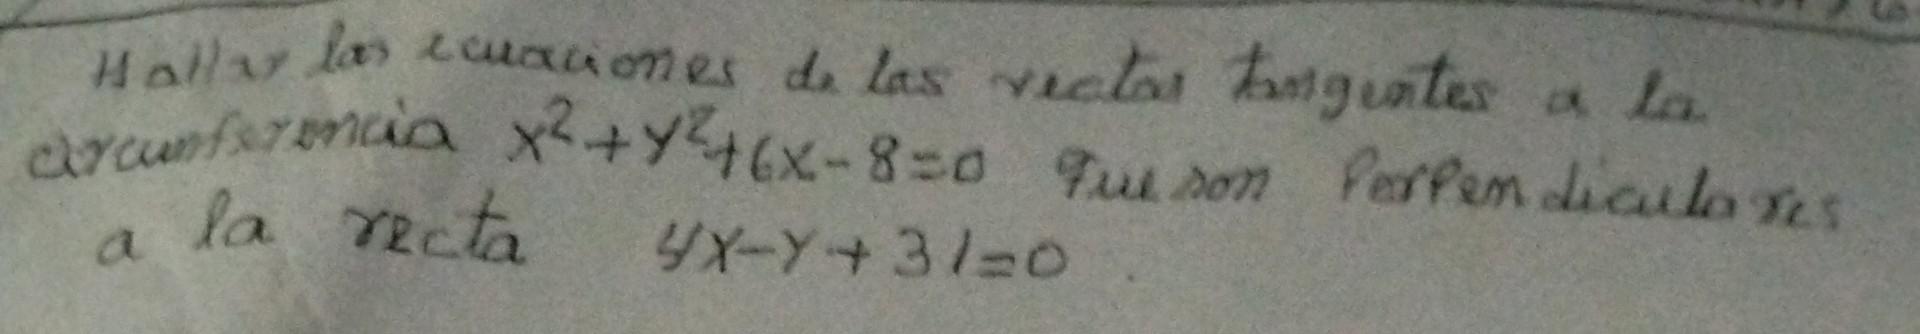 Hallar las ecuaciones de las rectas tangentes a la
circunferencia x²+y²+6x-8=0 que son Perpendiculares
a la recta 4x-y+31=0.